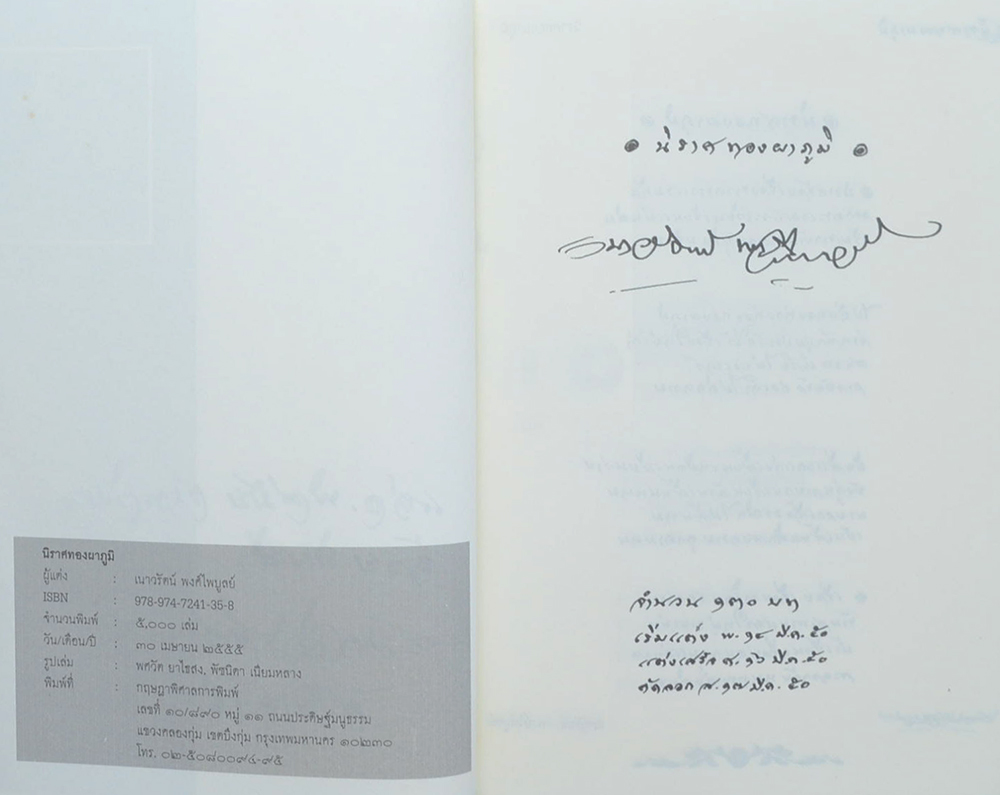 นิราศทองผาภูมิ
ผู้แต่ง : เนาวรัตน์ พงศ์ไพบูลย์
ISBN : 978-974-7241-35-8
จำนวนพิมพ์ : ๕,๐๐๐ เล่ม
วัน/เดือน/ปี : ๓๐ เมษายน ๒๕๕๕
รูปเล่ม : พศวัต ยาไชสง, พัชนิดา เนียมหลาง
พิมพ์ที่ : กฤษฎาพิศาลการพิมพ์
เลขที่ ๑๐/๘๙๐ หมู่ ๑๑ ถนนประดิษฐ์มนูธรรม
แขวงคลองกุ่ม เขตบึงกุ่ม กรุงเทพมหานคร ๑๐๒๓๐
โทร. ๐๒-๕๐๘๐๐๙๔-๙๕
นิราศทองผาภูมิ
เนาวรัตน์ พงษ์ไพบูลย์
จำนวน ๑๓๐ บท
เริ่มแต่ง พ. ๑๔ มี.ค. ๕๐
แต่งเสร็จ ศ. ๑๖ มี.ค. ๕๐
คัดลอก ส. ๑๗ มี.ค. ๕๐